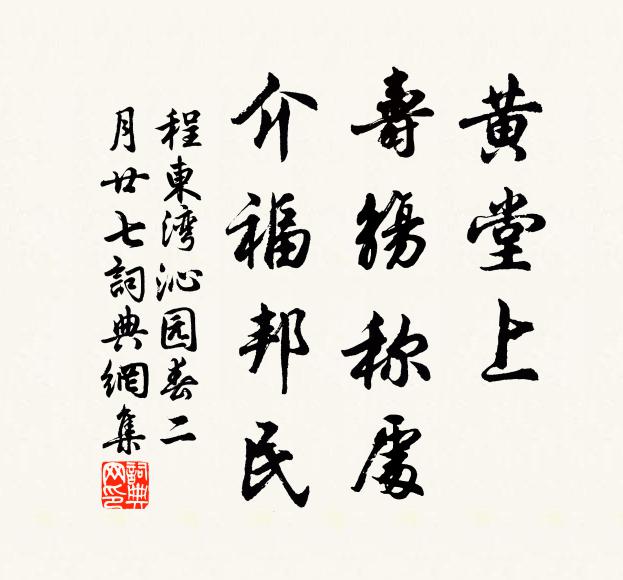 黄堂上
壽觴称處
介福邦民
程東湾沁园春二
月廿七詞典網集
詞典网印